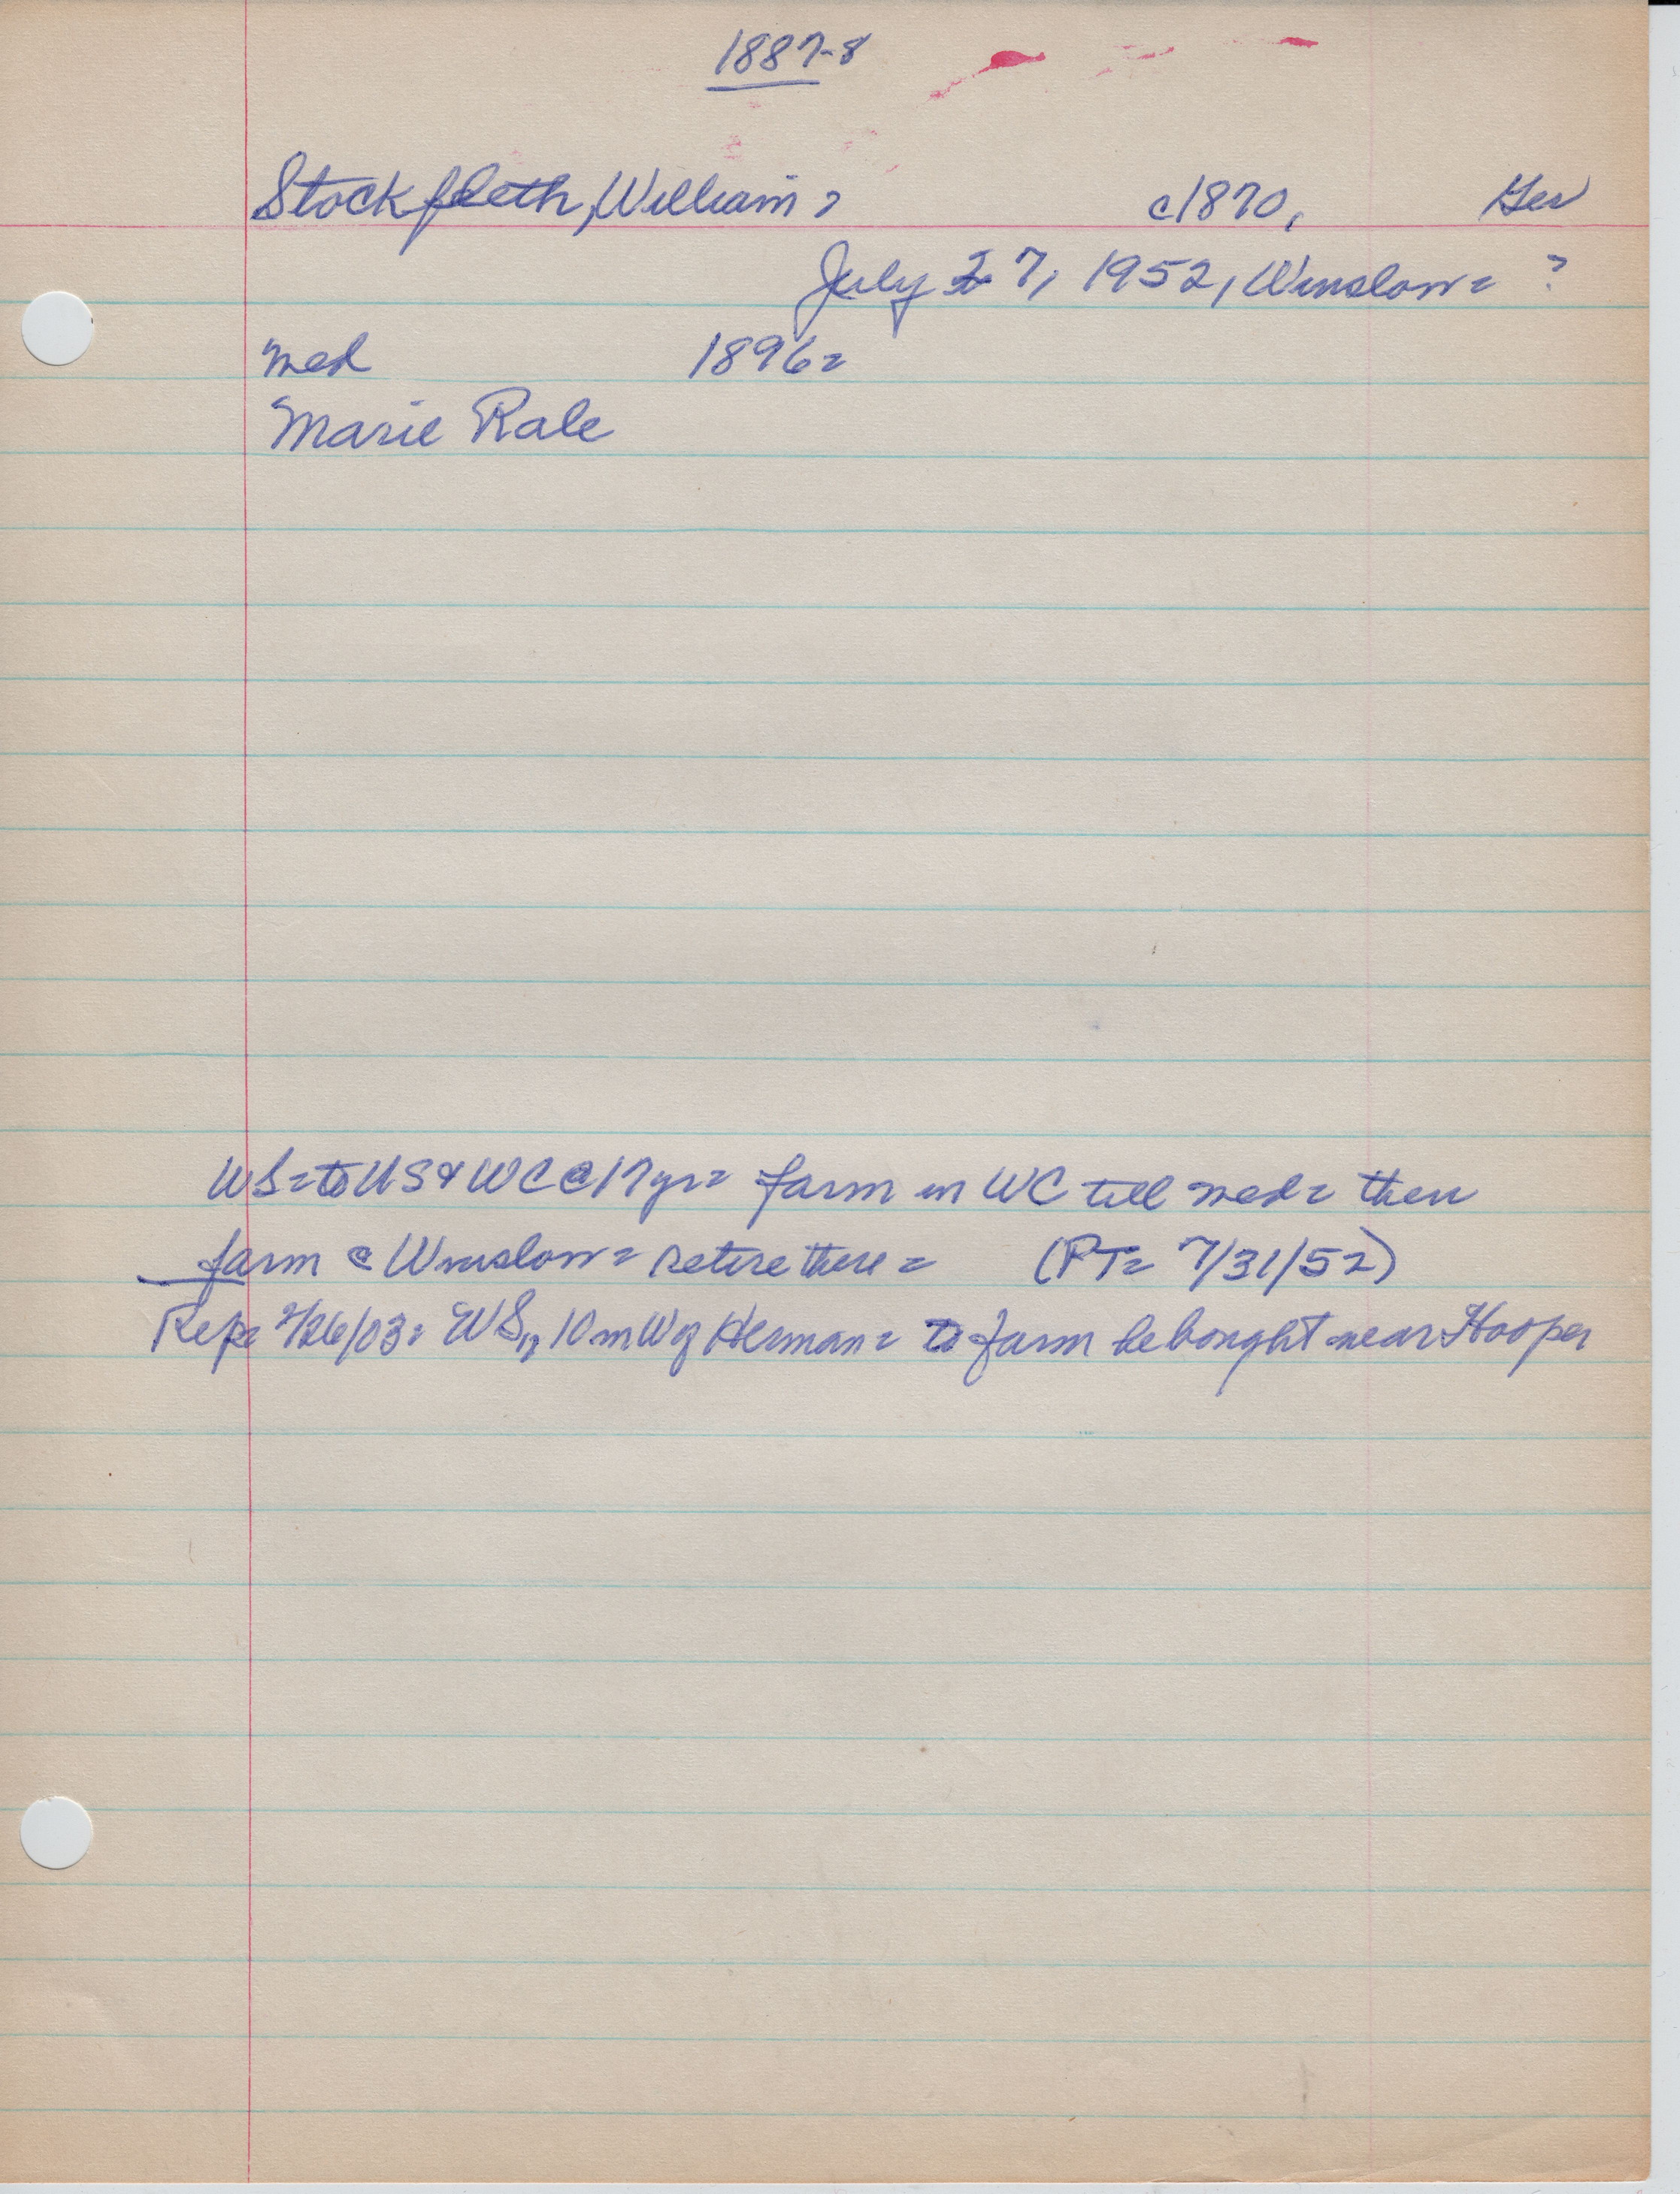 1887-8
Stockfleth, William =
c1870, Ger
July 27, 1952, Winslow = ?
med 1896 =
Marie Rale
WS = to US & WC @ 17 yr = farm in WC till med = then
farm @ Winslow = retire there = (PT = 7/31/52)
Rep = 2/26/03 = WS, 10 m W of Herman = to farm he bought near Hooper